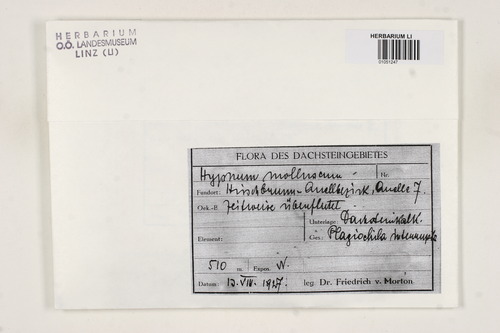 HERBARIUM
O.Ö. LANDESMUSEUM
LINZ (LI)
HERBARIUM LI
01051247
FLORA DES DACHSTEINGEBIETES
Hypnum molluscum Nr.
Fundort: Hirschbrunn-Quellbezirk, Quelle 7.
Oek.-E. zeitweise überflutet
Unterlage: Dachsteinkalk.
Element: Ges.: Plagiochila interrupta
510 m Expos. W.
Datum 13. VIII. 1927. leg. Dr. Friedrich v. Morton